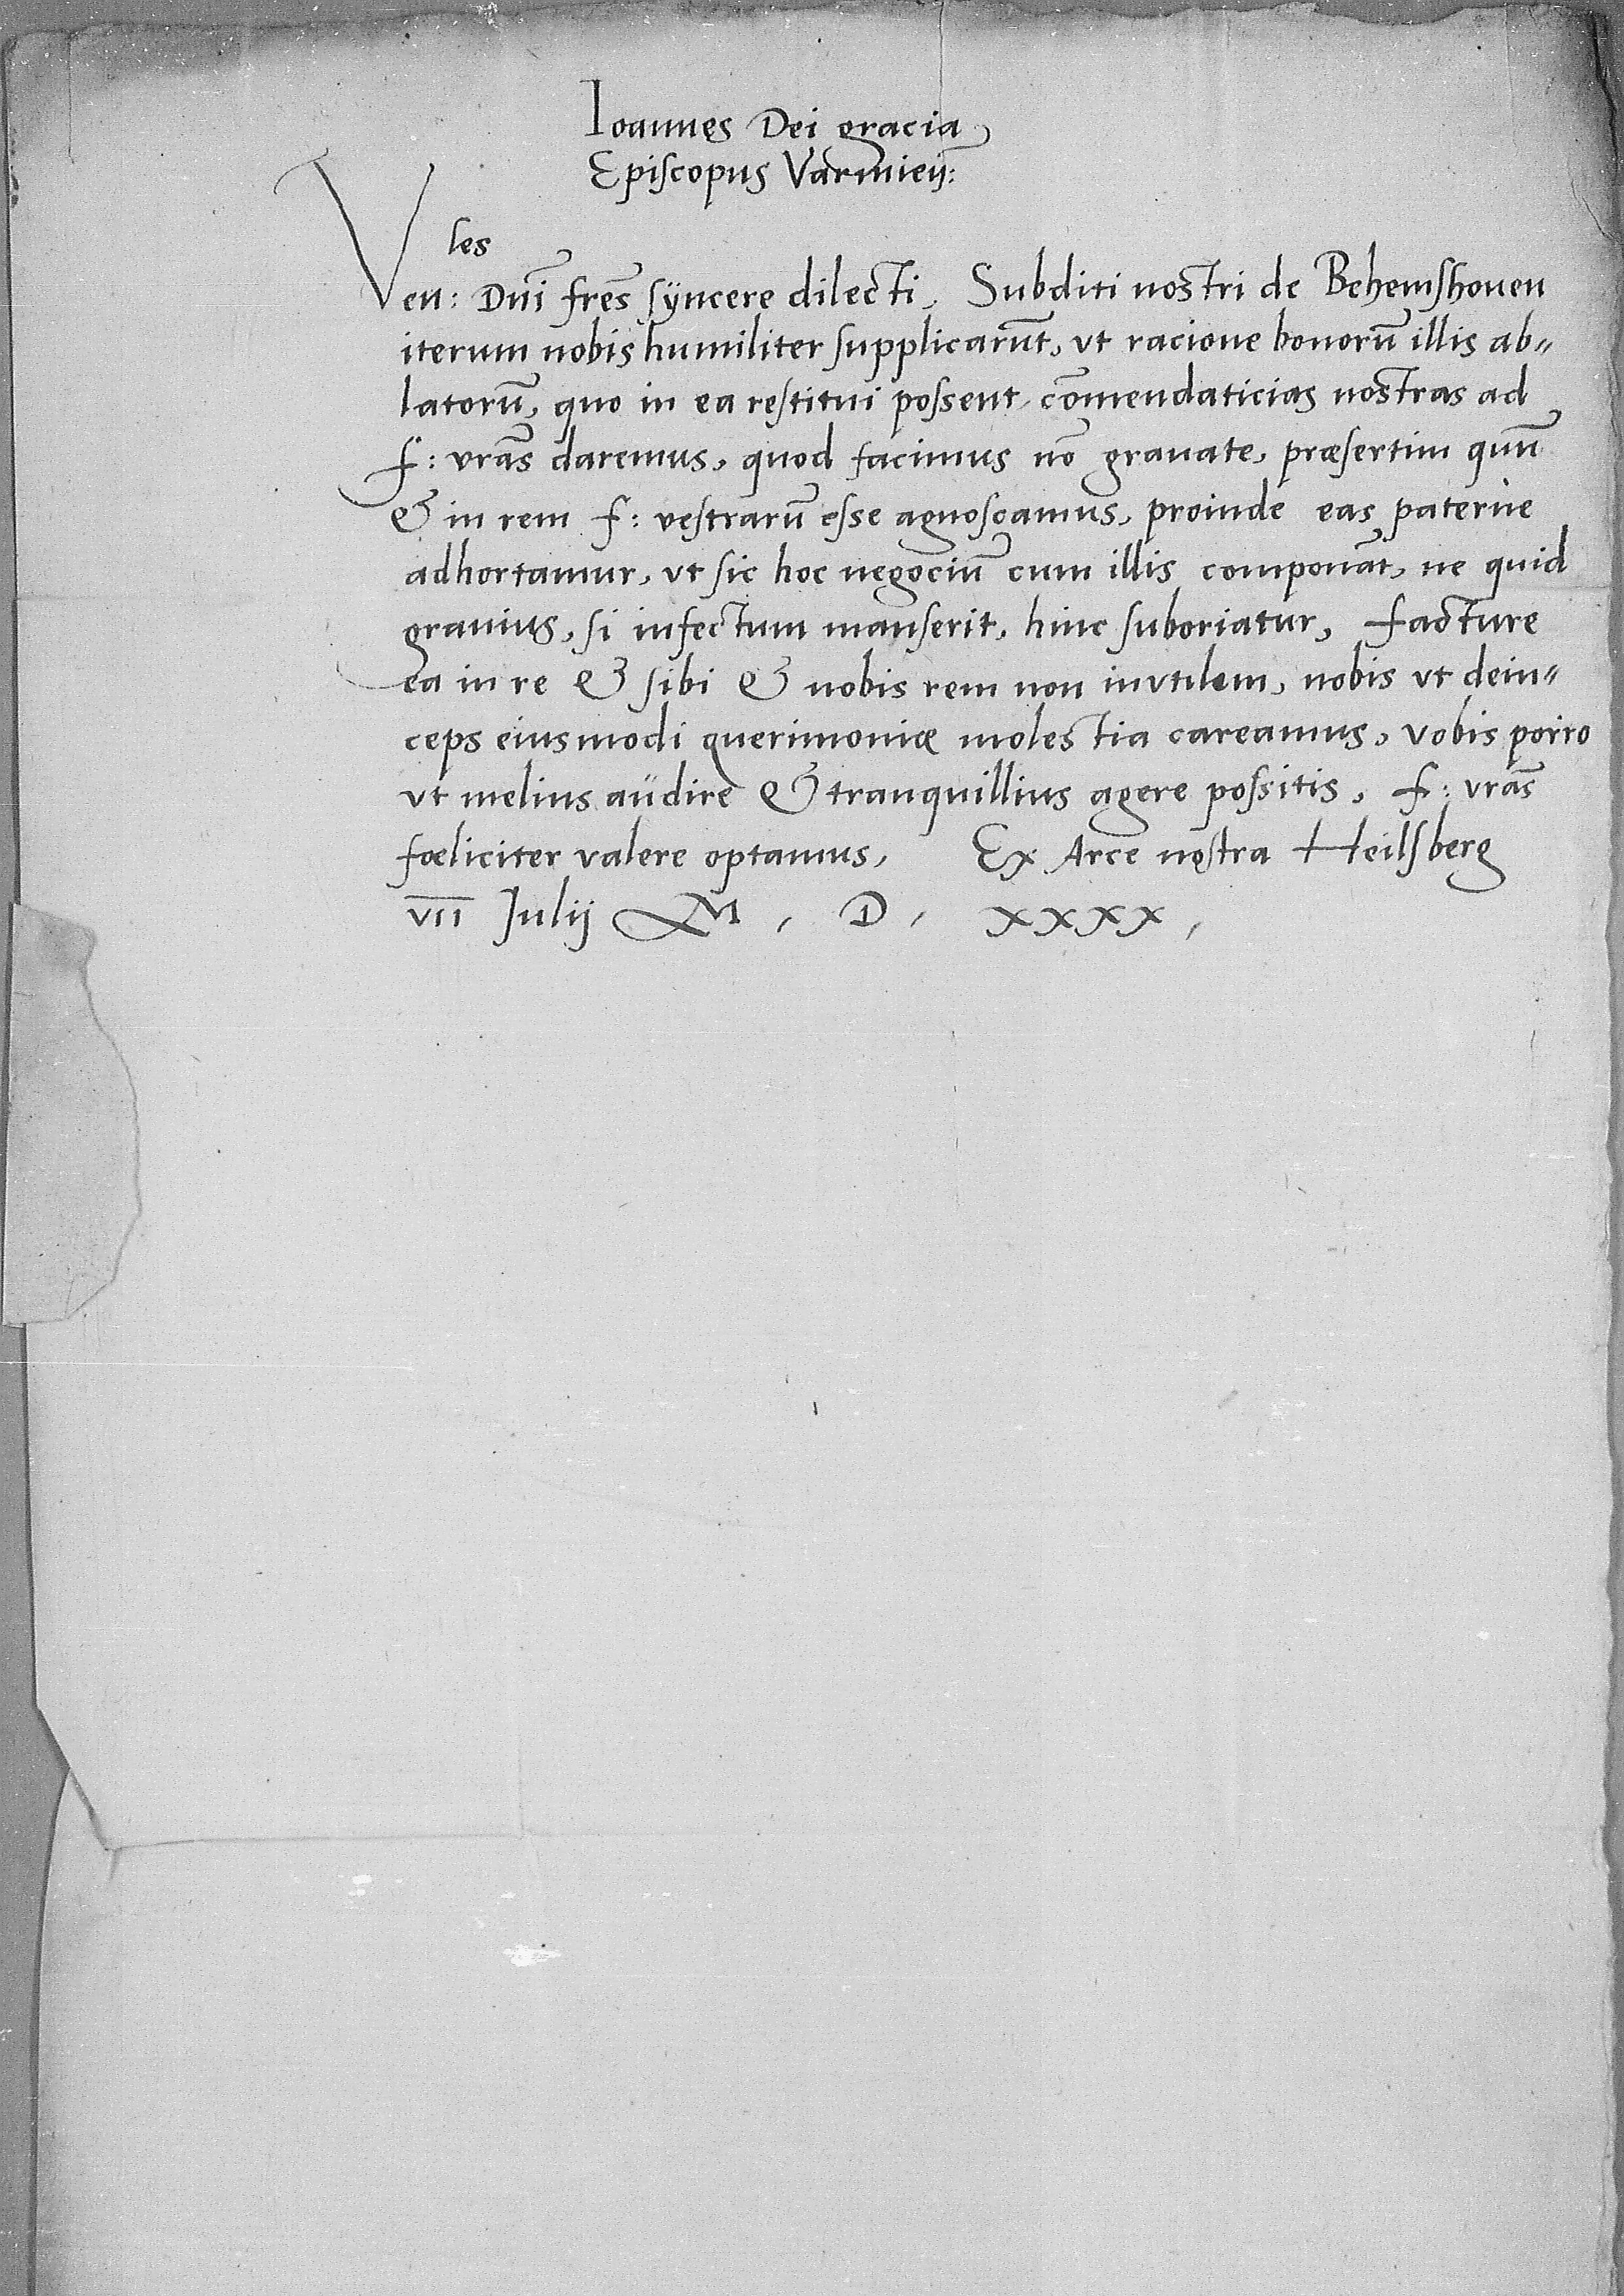 Ioannes Dei gracia
Episcopus Varmieñ:
les
Ven: Dnĩ frẽs syncere dilecti, Subditi nostri de Behemshouen
iterum nobis humiliter supplicarũt, vt racione bonorũ illis ab„
latorũ, quo in ea restitui possent, cõmendaticias nostras ad
f: vrãs daremus, quod facimus nõ grauate, præsertim quũ
& in rem f: vestrarũ esse agnoscamus, proinde eas paterne
adhortamur, vt sic hoc negociũ cum illis componãt, ne quid
grauius, si infectum manserit, hinc suboriatur, facturę
ea in re & sibi & nobis rem non invtilem, nobis vt dein„
ceps eiusmodi querimoniæ molestia careamus, vobis porro
vt melius audire & tranquillius agere possitis, f: vrãs
fœliciter valere optamus, Ex Arce nostra Heilsberg
VII Julij M, D, XXXX,